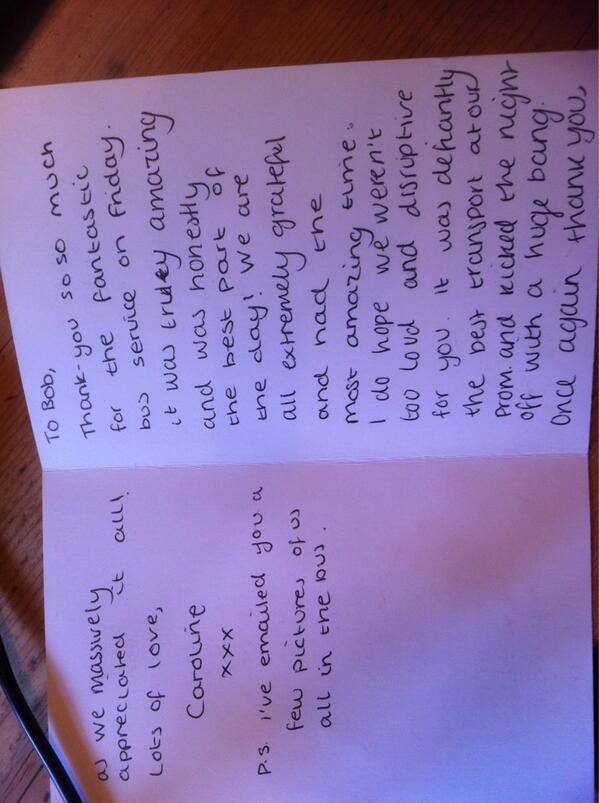 To Bob,
Thank-you so so much
for the fantastic
bus service on Friday.
it was truley amazing
and was honestly
the best part of
the day! We are
all extremely grateful
and had the
most amazing time.
I do hope we weren't
too loud and disruptive
for you. It was defiantly
the best transport at our
prom. and kicked the night
off with a huge bang.
Once again thank you,
as we massively
appreciated it all!
Lots of love,
Caroline
xxx
P.S. I've emailed you a
few pictures of us
all in the bus.